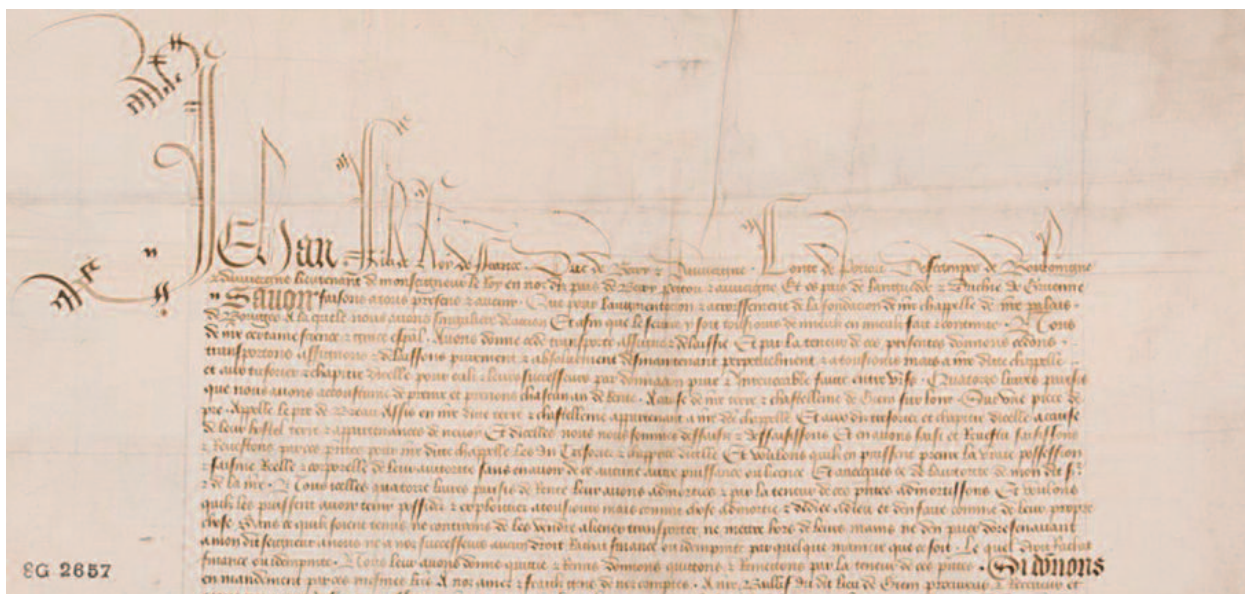 JEHan filz de Roy de france . Duc de Berry & dauvergne . Conte de Poitou Destampes de Bouloingne
& dauvergne lieutenant de monseigneur le Roy en nos diz pais de Berry poitou & auvergne Et es pais de languedoc & Duchie de Guienne
Savoir faisons a tous presens & avenir . Que pour laugmentacion & accroissement de la fondacion de nre chapelle de nre palais
de Bourges a la quele nous avons singuliere devocion Et afin que le service y soit tousiours de mieulx en mieulx fait & continue . Nous
de nre certaine science & grace espal . Avons donne cede transporte assigne & delaissie Et par la teneur de ces presentes donnons cedons .
transportons assignons & delaissons purement & absolument desmaintenant perpetuelment & a tousiours mais a nre dicte chapelle
et aux tresorier & chapitre dicelle pour eulx & leurs successeurs par donnacion pure & Irrevocable faicte entre vifs . Quatorze livres parisis
que nous avons acoustume de prenre et prenons chascun an de Rente . A cause de nre terre & chastellenie de Gien sur loire . Sur une piece de
pre . Appelle le pre de en nre dicte terre & chastellenie appartenant a nre dce chapelle Et aux diz tresorier et chapitre dicelle a cause
de leur hostel terre & appartenances de Et dicelles nous nous sommes dessaisiz & dessaisissons Et en avons saisi et Revestu saisissons
& Revestons par ces pntes pour nre dicte chapelle les diz Tresorier & chappitre dicelle Et voulons quilz en puissent prenre la vraie possession
& saisine Reelle & corporelle de leur auctorite sans en avoir de ce aucune autre puissance ou licence Et avecques ce de lauctorite de mon dit sr
& de la nre . Nous icelles quatorze livres parisis de Rente leur avons admorties & par la teneur de ces pntes admortissons Et voulons
quilz les puissent avoir tenir possider & exploictier a tousiours mais comme chose admortie & dediee a dieu et den faire comme de leur propre
chose . Sans ce quilz soient tenuz ne contrains de les vendre aliener transporter ne mettre hors de leurs mains ne den paier doresenavant
a mon dit seigneur a nous ne a nos successeurs aucun droit Rachat finance ou idempnite par quelque maniere que ce soit . Le quel droit Rachat
finance ou idempnite . Nous leur avons donne quitte & Remis donnons quittons & Remettons par la teneur de ces pntes . Si donnons
en mandement par ces mesmes lres A nos amez & feaulx gens de nos comptes . A nre Bailli du dit lieu de Gien & Receveur et
EG 2657